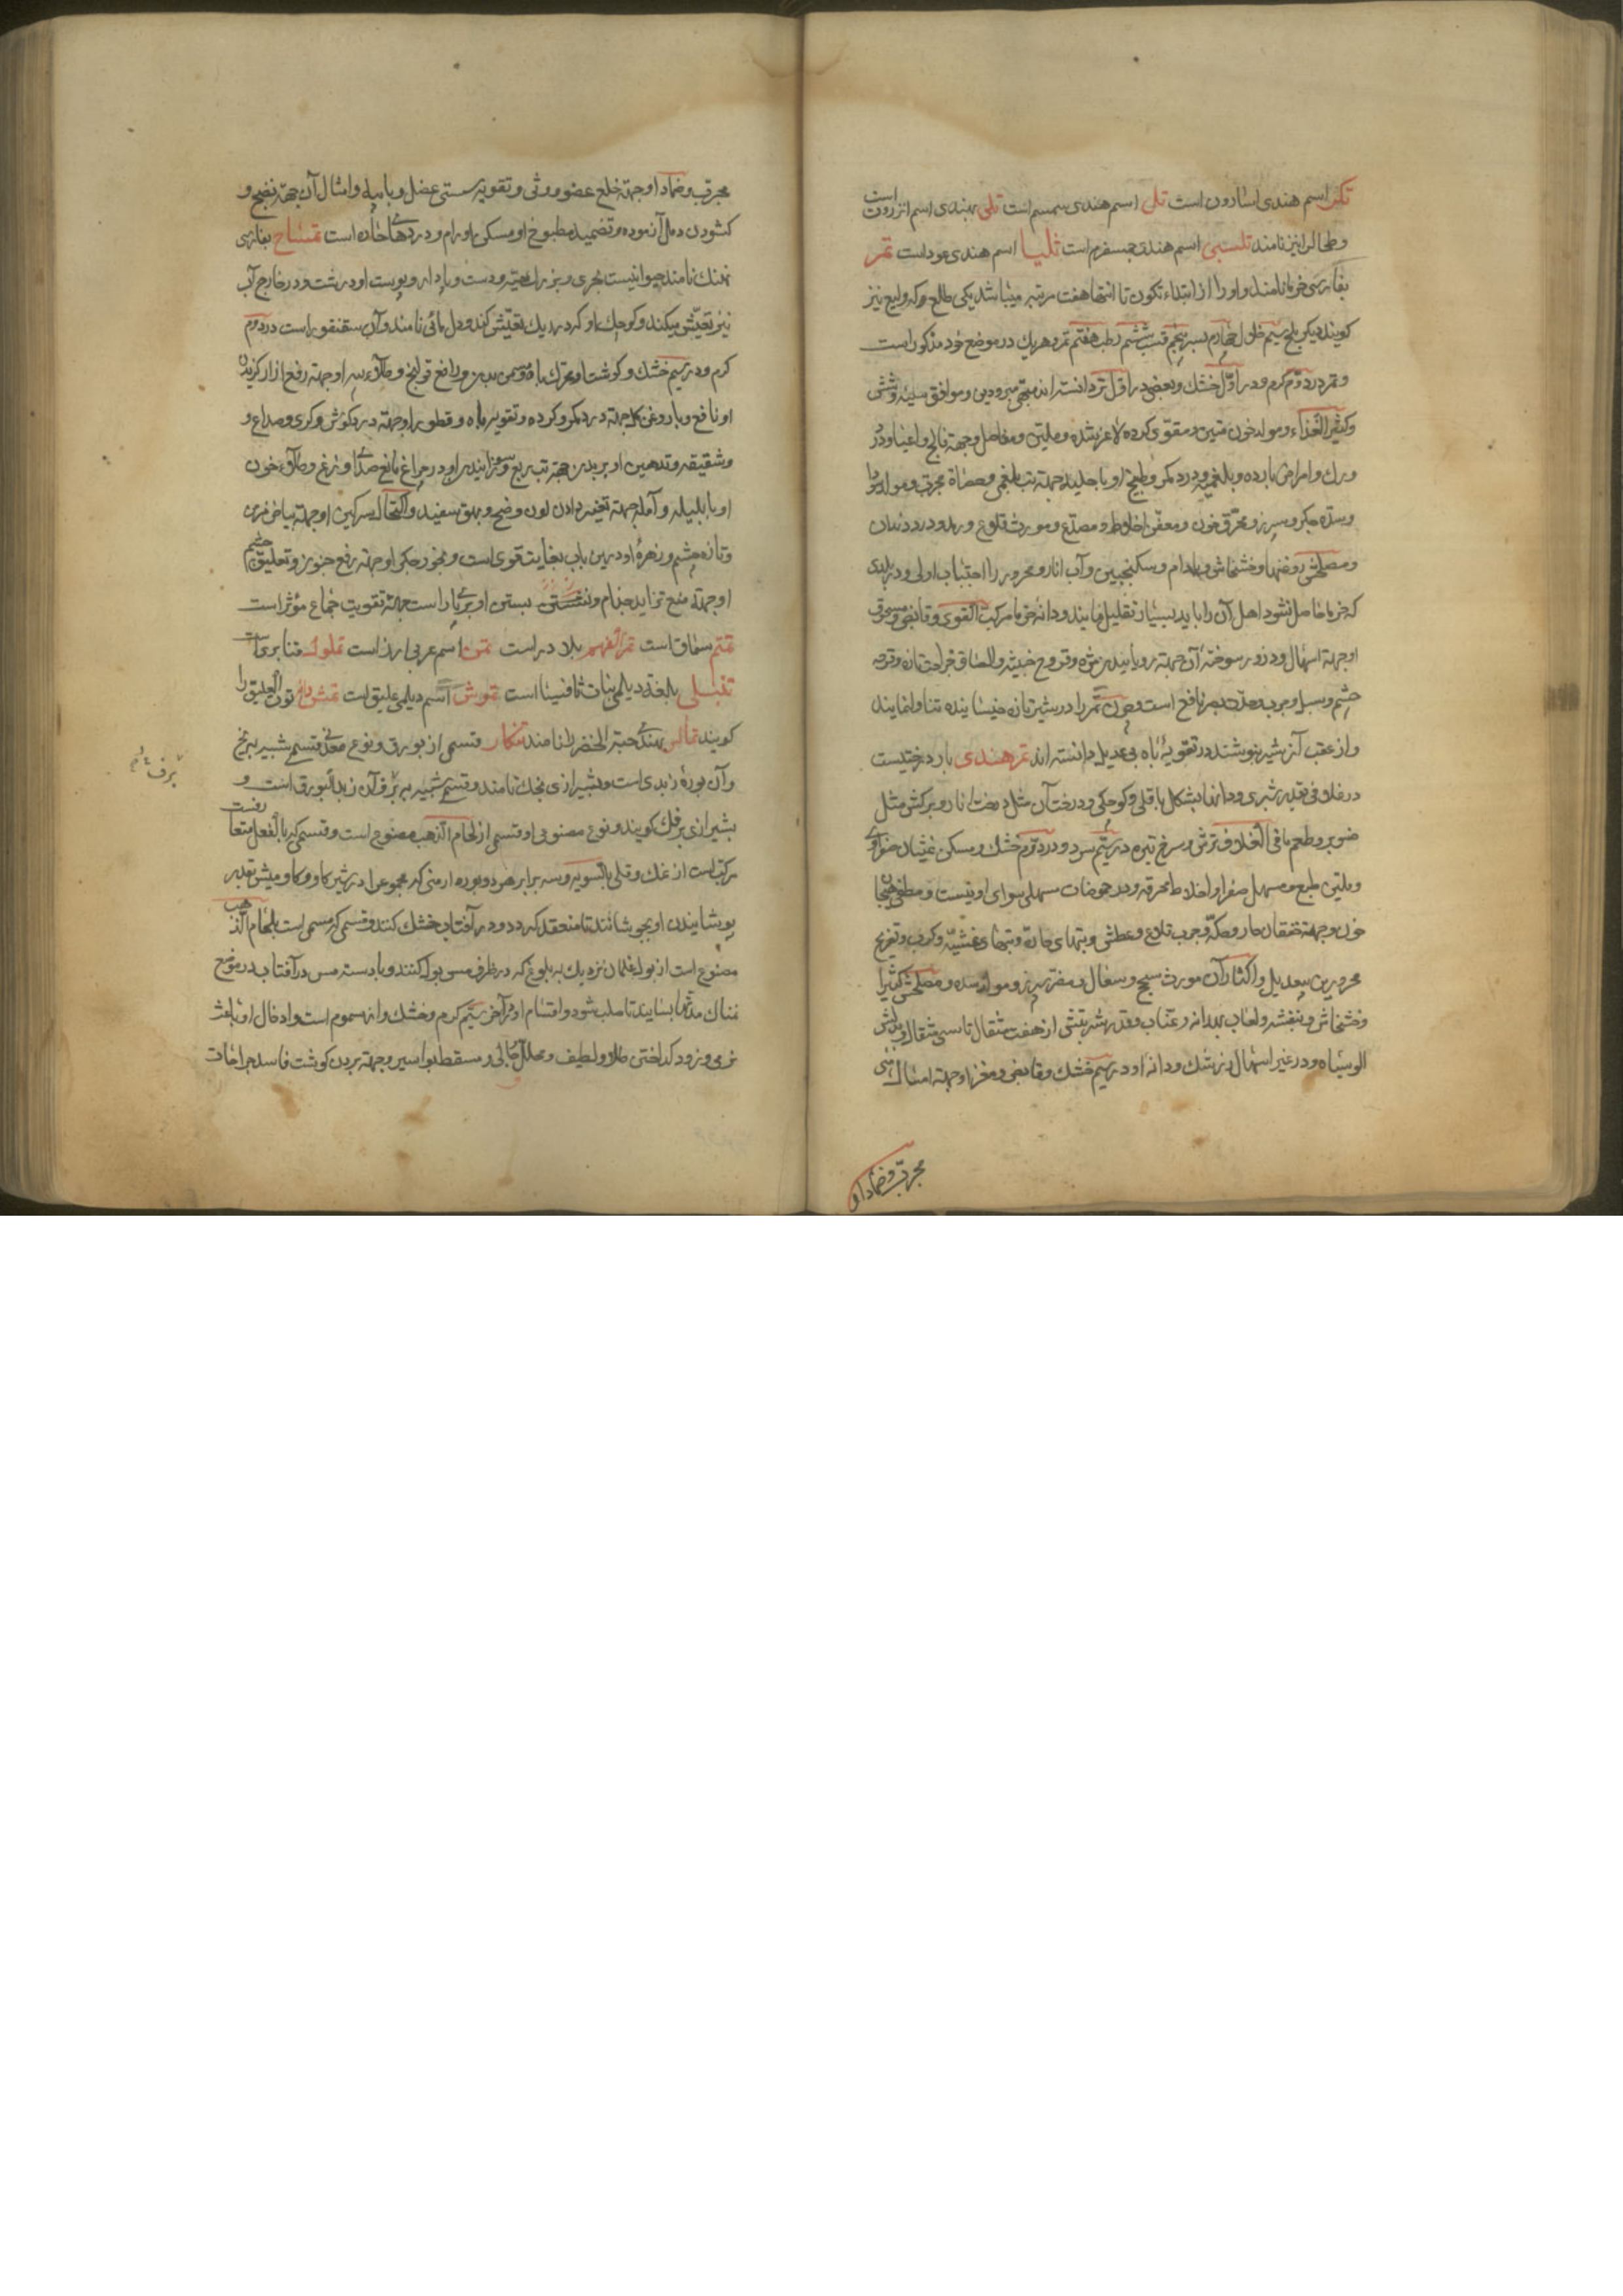 تکر اسم هندی اسارون است تل اسم هندی سمسم است تلی بهندی اسم انزروت است
و طحال را نیز نامند تلسی اسم هندی است تلیا اسم هندی عود است تمر
بفارسی خرما نامند و او را از ابتداء تکون تا انتها هفت مرتبه میباشد یکی طلع و که ولیع نیز
کویند دیکر بلح سیم خلال چهارم بسر پنجم قسب ششم رطب هفتم تمر و هریك در موضع خود مذکور است
و تمر در دوّم کرم و در اوّل خشك و بعضی در اوّل تر دانسته اند مبهّی مبرودین و موافق سینه و شش
و کثیر الغذاء و مولد خون متین و مقوّی کرده لاغر شده و ملین و مفاصل و جهة فالج و اعیا و درد
ورك و امراض بارده و بلغمیّه و درد کمر و طبیخ او با حلبه جهة تب بلغمی و حصاة مجرب و مولد سودا
و سدّه جکر و سپرز و محرّق خون و معفّن اخلاط و مصدّع و مورث قلاع و رمد و درد دندان
و مصلحش روغنها و خشخاش و بادام و سکنجبین و آب انار و محرور را اجتناب اولی و در بلادی
که خرما حاصل نشود اهل آن را باید بسیار تقلیل نمایند و دانه خرما مرکب القوی و قابض و محرق
او جهة اسهال و ذرور سوخته آن جهة رویانیدن مژه و قروح خبیثه و الصاق جراحت تازه و قرحه
چشم و سبل و جرب و حدّت بصر نافع است و چون تمر را در شیر تازه خیسانیده تناول نمایند
و از عقب آن شیر بنوشند در تقویة باه بی عدیل دانسته اند تمر هندی بار درختیست
در غلافی بقدر شبری و دانها بشکل باقلی و کوچکی و درخت آن مثل درخت انار و برکش مثل
صنوبر و طعم مافی الغلاف ترش و سرخ تیره در سیّم سرد و در دوّم خشك و مسکن غثیان صفراوی
و ملین طبع و مسهل صفرا و اخلاط محرقه و در حموضات مسهلی سوای او نیست و مطفی هیجان
خون و جهة خفقان حار و حکّه و جرب قلاع و عطش و تبهای حادّه و تبهای غشیّه و کرب و تفریح
محرورین بیعدیل و اکثار آن مورث سحج و سعال و مضرّ سپرز و مولد سده و مصلحش کثیرا
و خشخاش و بنفشه و لعاب بهدانه و عنّاب و قدر شربتش از هفت مثقال تا سی مثقال و بدلش
الو سیاه و در غیر اسهال زرشك و دانه او در سیم خشك و قابض و مغز او جهة امساك منی
مجرب و ضماد او
مجرب و ضماد او جهة خلع عضو و وثی و تقویه سستی عضل و با میه و امثال آن جهة نضج و
کشودن دمل آزموده و تضمید مطبوخ او مسکن اورام و دردهای حادّه است تمساح بفارسی
نهنك نامند حیوانیست بحری و بزرك جثّه و دست و پا دار و پوست او درشت و در خارج آب
نیز تعیّش میکند و کوچك او که در ریك تعیّش کند ورل مائی نامند و آن سقنقور است در دوّم
کرم و در سیم خشك و کوشت او محرّك باه و مسمن بدن و رافع قولنج و طلاء پیه او جهة رفع آزار کزیدن
او نافع و با روغن کل جهة درد کمر و کرده و تقویه باه و قطور او جهة درد کوش و کری و صداع و
و شقیقه و تدهین او بر بدن جهة تب ربع و سوزانیدن او در چراغ مانع صدای وزغ و طلاء خون
او با بلیله و آمله جهة تغییر دادن لون وضح و بهق سفید و اکتحال سرکین او جهة بیاض مزمن
و تازه چشم و زهره او درین باب بغایت قوی است و بخور جکر او جهة رفع جنون و تعلیق چشم
او جهة منع تزاید جذام و بستن او بر بازو است جهة تقویت جماع مؤثر است
تمتم سماق است تمر الفهم بلادر است تمن اسم عربی ارز است تملول قنابری است
تنبلی بلغة دیلمی نبات ثافسیا است تموش اسم دیلمی علیق است تمش دانه توت العلیق را
کویند تنکار قسمی از بورق و نوع معدنی قسم شبیه ببرنج
و آن بوره زبدی است و بشیرازی نامند و قسم شبیه ببرف آن زبد البورق است و
بشیرازی برفك کویند و نوع مصنوعی او قسمی از لحام الذهب مصنوع است و قسمی که بالفعل متعارفست
مرکب است از نمك و قلی بالسویه و سه برابر هر دو بوره ارمنی که مجموع را در شیر کاو و کاومیش بقدر
پوشانیدن او بجوشانند تا منعقد کردد و در آفتاب خشك کنند و قسمی که مسمی است بلحام الذهب
مصنوع است از بول غلمان نزدیك به بلوغ که در ظرف مس بول کنند و با دسته مس در آفتاب در موضع
نمناك مدتها بسایند تا صلب شود و اقسام او در آخر سیّم کرم و خشك و از سموم است و ادخال او باعث
نرمی و زود کداختن طلا و لطیف و محلل و جالی و مسقط بواسیر و جهة بردن کوشت فاسد جراحات
برف